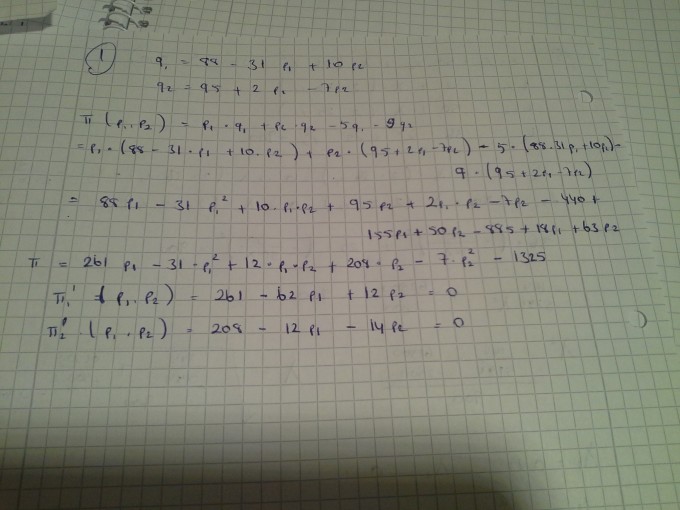 1
q₁ = 88 - 31 p₁ + 10 p₂
q₂ = 95 + 2 p₁ - 7p₂
π (p₁, p₂) = p₁ · q₁ + p₂ · q₂ - 5q₁ - 9q₂
= p₁ · (88 - 31 · p₁ + 10 · p₂) + p₂ · (95 + 2p₁ - 7p₂) - 5 · (88 - 31 p₁ + 10p₂) -
9 · (95 + 2p₁ - 7p₂)
= 88 p₁ - 31 p₁² + 10 · p₁ · p₂ + 95 p₂ + 2p₁ · p₂ - 7p₂ - 440 +
155p₁ + 50 p₂ - 885 + 18p₁ + 63 p₂
π = 261 p₁ - 31 · p₁² + 12 · p₁ · p₂ + 208 · p₂ - 7 · p₂² - 1325
π₁' (p₁, p₂) = 261 - 62 p₁ + 12 p₂ = 0
π₂' · (p₁, p₂) = 208 - 12 p₁ - 14 p₂ = 0